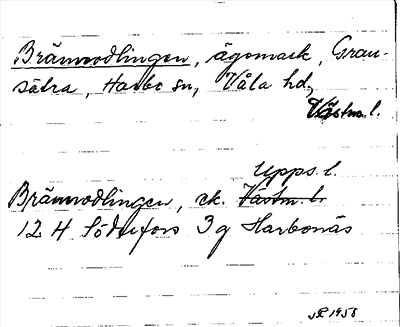 Brännodlingen, ägomark, Gran-
sätra, Harbo sn, Våla hd,
Västm. l.
Upps. l.
Brännodlingen, ek. Västm. l.
12 H Söderfors 3g Harbonäs
1958